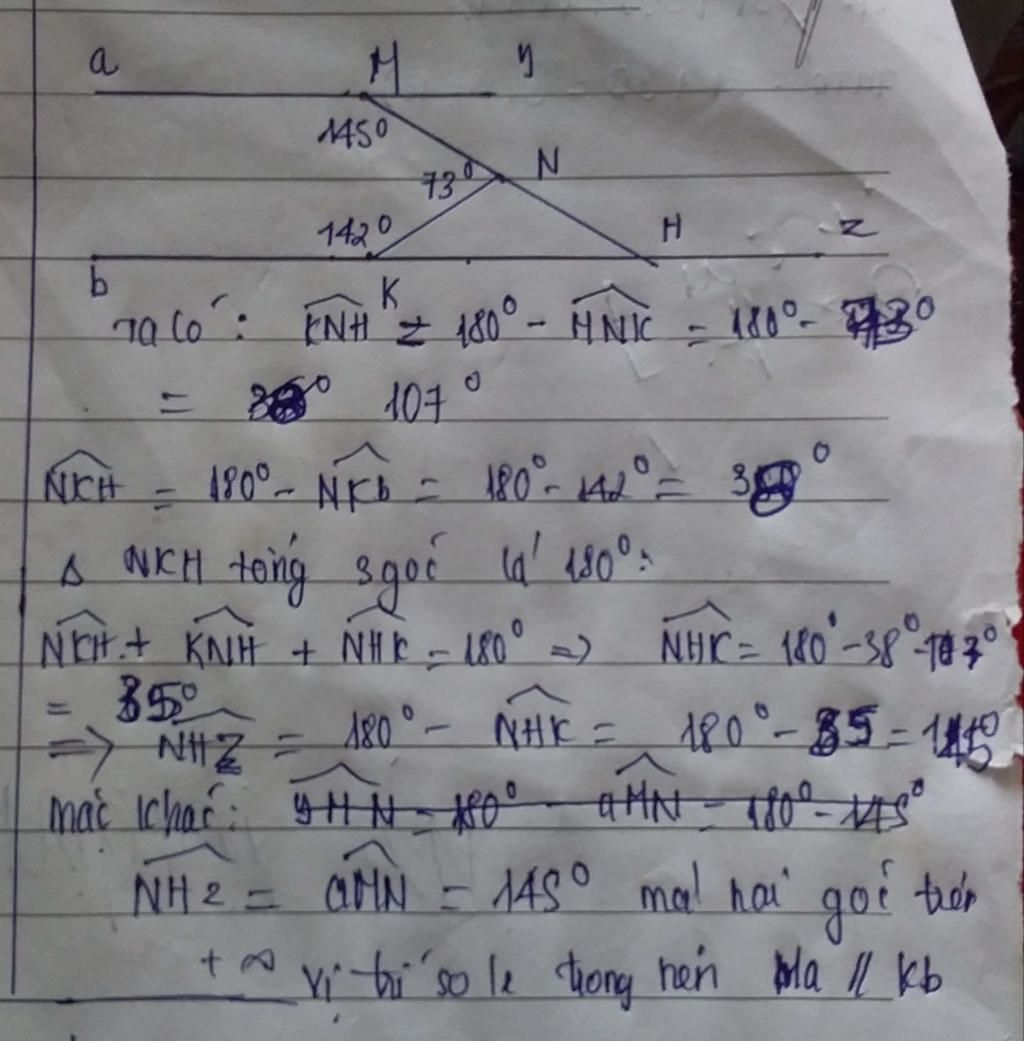 a M y
145°
73° N
142° H z
b K
Ta có: KNH = 180° - MNK = 180° - 73°
= 107°
NKH = 180° - NKb = 180° - 142° = 38°
Δ NKH tổng 3 góc là 180°:
NKH + KNH + NHK = 180° => NHK = 180° - 38° - 107°
= 35°
=> NHZ = 180° - NHK = 180° - 35 = 145°
mặc khác: yMN = 180° - aMN = 180° - 145°
NHZ = aMN = 145° mà hai góc trên
+ ∞ vị trí so le trong nên Ma // Kb